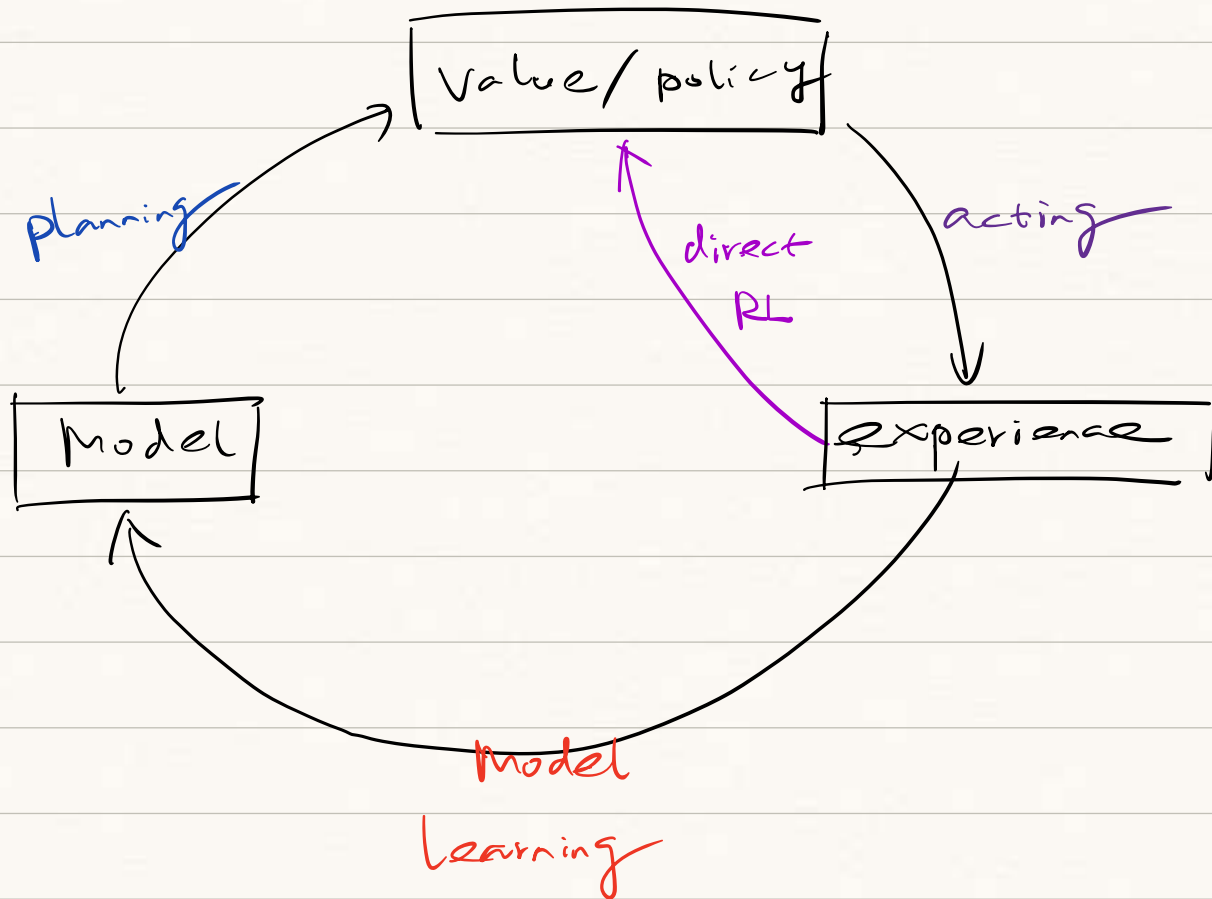 value/policy
planning
acting
direct
RL
Model
experience
Model
Learning